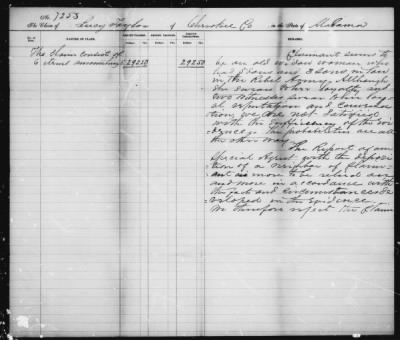 No. 7253
The Claim of Lucy Taylor of Cherokee Co in the State of Alabama
NATURE OF CLAIM. REMARKS.
The Claim Consists of
6 items amounting $292 50 292 50
Claimant seems to
be an old widow woman who
had Sons and 3 Sons in law
in the Rebel Army. Although
she swears to her loyalty and
two witnesses swear to her loyal
reputation and Conversa
tion, we are not Satisfied
with the Sufficiency of the Evi
dence. The probabilities are all
the other way.
The Report of our
Special Agent with the deposi
tion of a neighbor of Claim
ant is more to be relied on
and more in accordance with
the facts and circumstances de
veloped in the Evidence.
We therefore reject the Claim